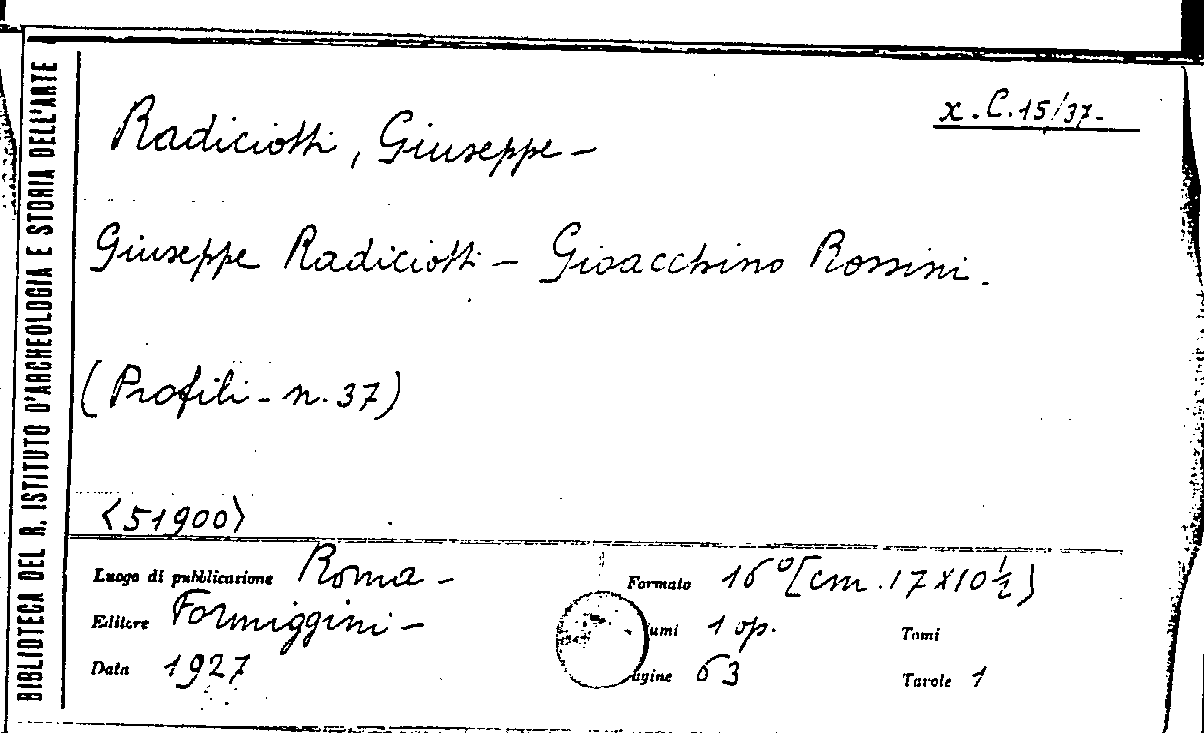 BIBLIOTECA DEL R. ISTITUTO D'ARCHEOLOGIA E STORIA DELL'ARTE
x.C.15/37-
Radiciotti, Giuseppe -
Giuseppe Radiciotti - Gioacchino Rossini.
(Profili - n. 37)
<51900>
Luogo di pubblicazione Roma -
Formato 16° [cm. 17 x 10 ½)
Editore Formiggini -
umi 1 op.
Tomi
Data 1927
agine 63
Tavole 1